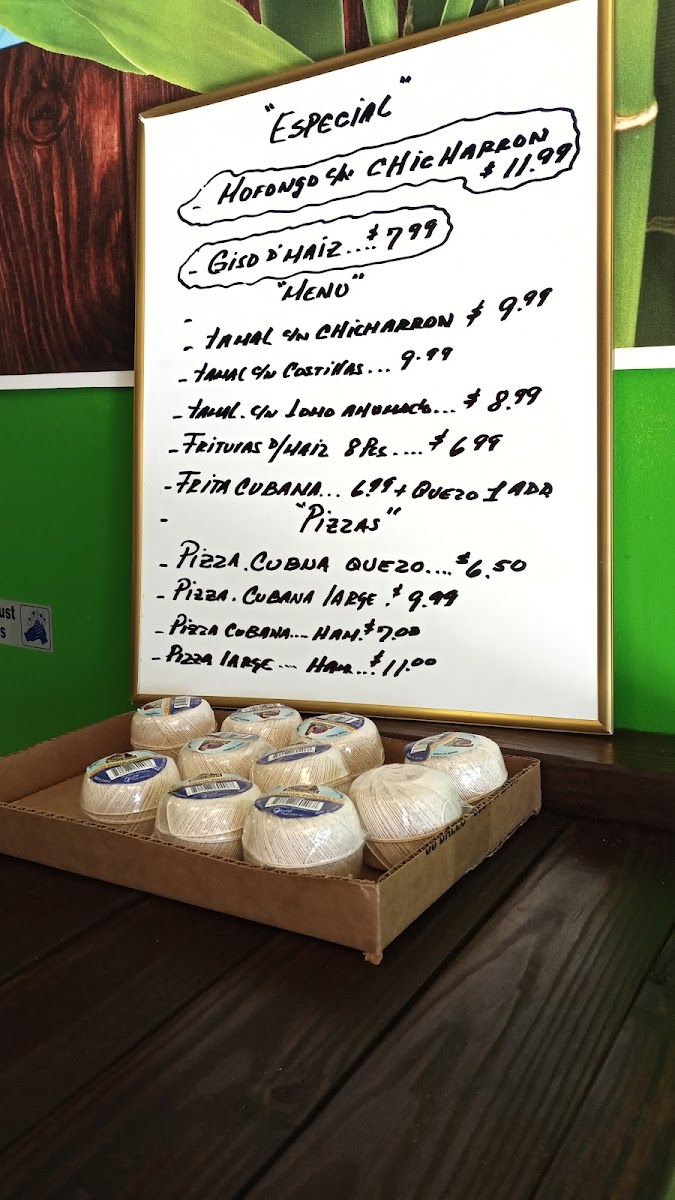 "ESPECIAL"
- MOFONGO C/N CHICHARRON
$ 11.99
- GISO D'MAIZ....$ 7 99
"MENU"
-
- TAMAL C/N CHICHARRON $ 9.99
- TAMAL C/N COSTILLAS... 9.99
- TAMAL. C/N LOMO AHUMADO... $ 8.99
- FRITURAS D/MAIZ 8 PCS.... $ 6 99
- FRITA CUBANA... 6.99 + QUEZO 1 ADD
- "PIZZAS"
- PIZZA. CUBNA QUEZO....$6.50
- PIZZA. CUBANA LARGE.$ 9.99
- PIZZA CUBANA.... HAM.$7.00
- PIZZA LARGE .... HAM...$11.00
ust
s